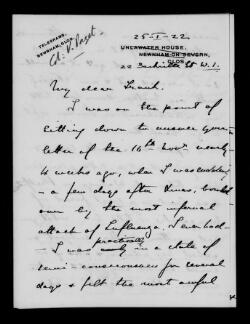 TELEGRAMS,
NEWNHAM, GLOS.
A. V. Paget
25-1-22
UNDERWATER HOUSE,
NEWNHAM-ON-SEVERN,
GLOS.
22 St W.1.
My dear Frank.
I was on the point of
sitting down to answer your
letter of the 16th Nov. nearly
4 weeks ago, when I was
- a few days after Xmas,
over by the most infernal
attack of Influenza. I ever had -
- I was practically in a state of
semi-consciousness for several
days & felt the most awful